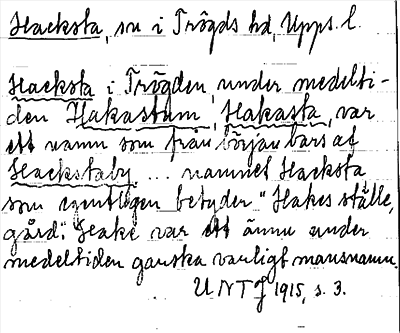 Hacksta, sn i Trögds hd, Upps. l.
Hacksta i Trögden, under medelti-
den Hakastum, Hakasta, var
ett namn som från början bars af
Hackstaby ... namnet Hacksta
som egentligen betyder "Hakes ställe,
gård". Hake var ett ännu under
medeltiden ganska vanligt mansnamn.
UNTf 1915, s. 3.